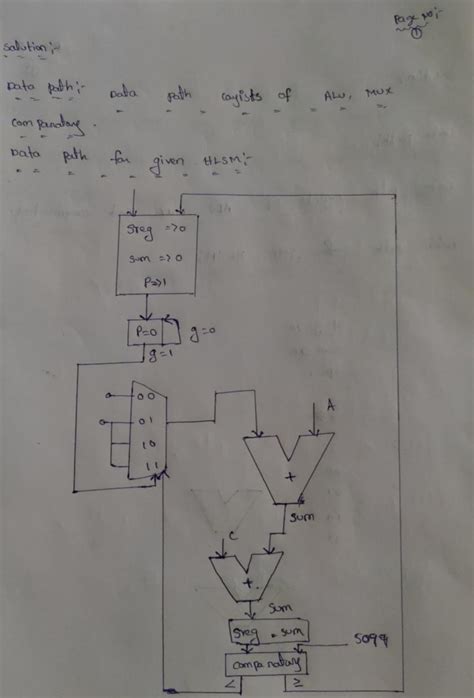 Page No:-
①
Solution:-
Data Path:- Data path cosists of ALU, MUX
Comparatory.
Data path for given HLSM:-
Sreg => 0
sum => 0
P => 1
P=0
g=0
g=1
00
01
10
11
A
+
sum
C
+
sum
Sreg = sum
5099
comparatory
< ≥